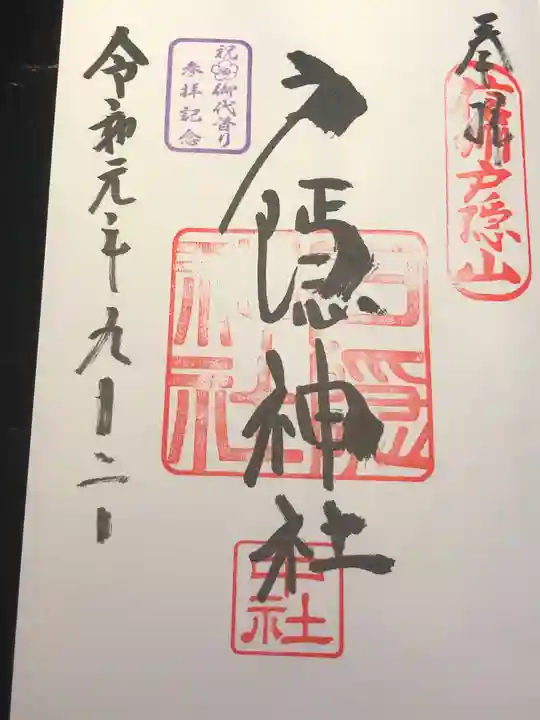 奉拝
信州戸隠山
戸隠神社
戸隠神社
中社
祝御代替り
参拝記念
令和元年九月二日